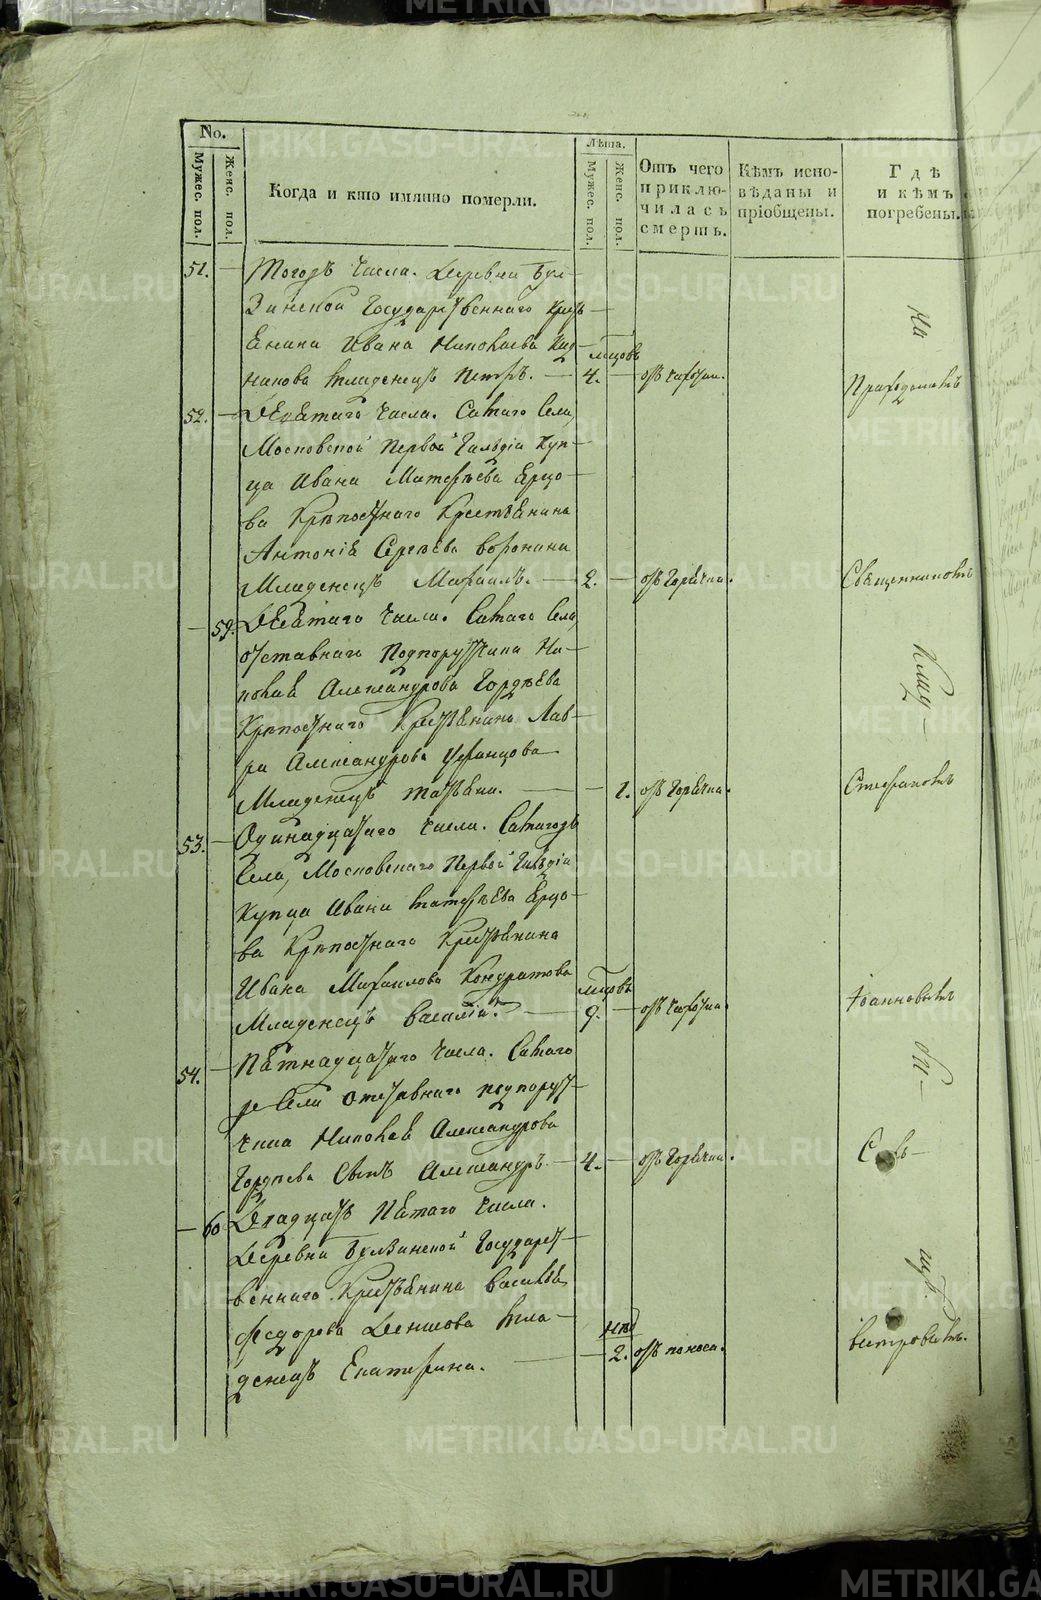 No.
Мужес. пол.
Женс. пол.
Когда и кто имянно померли.
Лѣта.
Мужес. пол.
Женс. пол.
Отъ чего
приклю-
чилась
смерть.
Кѣмъ испо-
вѣданы и
пріобщены.
Гдѣ
и кѣмъ
погребены.
51.
Тогожъ числа. Деревни Бул-
зинской Государственнаго Крест
янина Ивана Николаева
младенецъ Петръ. 4. отъ
52.
Девятаго числа. Самаго Села,
Московской Первой Гильдіи Куп-
ца Ивана Матвѣева Ерцо-
ва Крѣпостнаго Крестьянина
Антонія Сергѣева Воронина
Младенецъ Михаилъ. 2. отъ Горячки.
59.
Девятаго числа. Самаго Села,
отставнаго Подпорутчика Ни-
колая Александрова Гордѣева
Крѣпостнаго Крестьянина Лав-
ра Александрова
Младенецъ Татьяна. 1. отъ Горячки.
53.
Одинадцатаго числа. Самагожъ
Села, Московскаго Первой Гильдіи
Купца Ивана Матвѣева Ерцо-
ва Крѣпостнаго Крестьянина
Ивана Михаилова Кондратова
Младенецъ Василій. 9. отъ
54.
Пятнадцатаго числа. Самаго
же Села Отставнаго подпорут-
чика Николая Александрова
Гордѣева Сынъ Александръ. 4. отъ Горячки.
60
Двадцать Пятаго числа.
Деревни Булзинской Государст-
веннаго Крестьянина Василья
Федорова Деншова мла-
денецъ Екатерина. нед 2. отъ поноса.
На
Приходскомъ
Священникомъ
Клад-
Стефановымъ
Іоанновымъ
METRIKI.GASO-URAL.RU